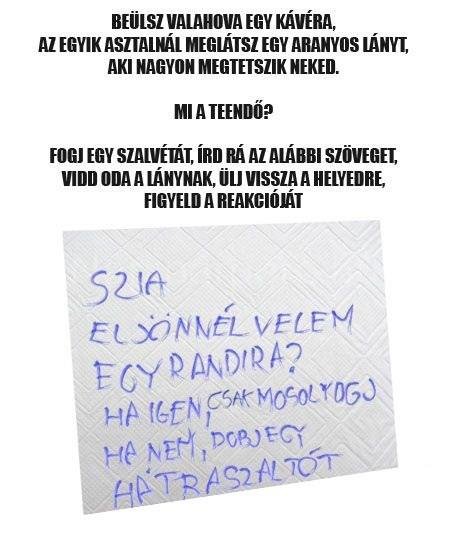 BEÜLSZ VALAHOVA EGY KÁVÉRA,
AZ EGYIK ASZTALNÁL MEGLÁTSZ EGY ARANYOS LÁNYT,
AKI NAGYON MEGTETSZIK NEKED.
MI A TEENDŐ?
FOGJ EGY SZALVÉTÁT, ÍRD RÁ AZ ALÁBBI SZÖVEGET,
VIDD ODA A LÁNYNAK, ÜLJ VISSZA A HELYEDRE,
FIGYELD A REAKCIÓJÁT
SZIA
ELJÖNNÉL VELEM
EGY RANDIRA?
HA IGEN, CSAK MOSOLYOGJ
HA NEM, DOBJ EGY
HÁTRASZALTÓT